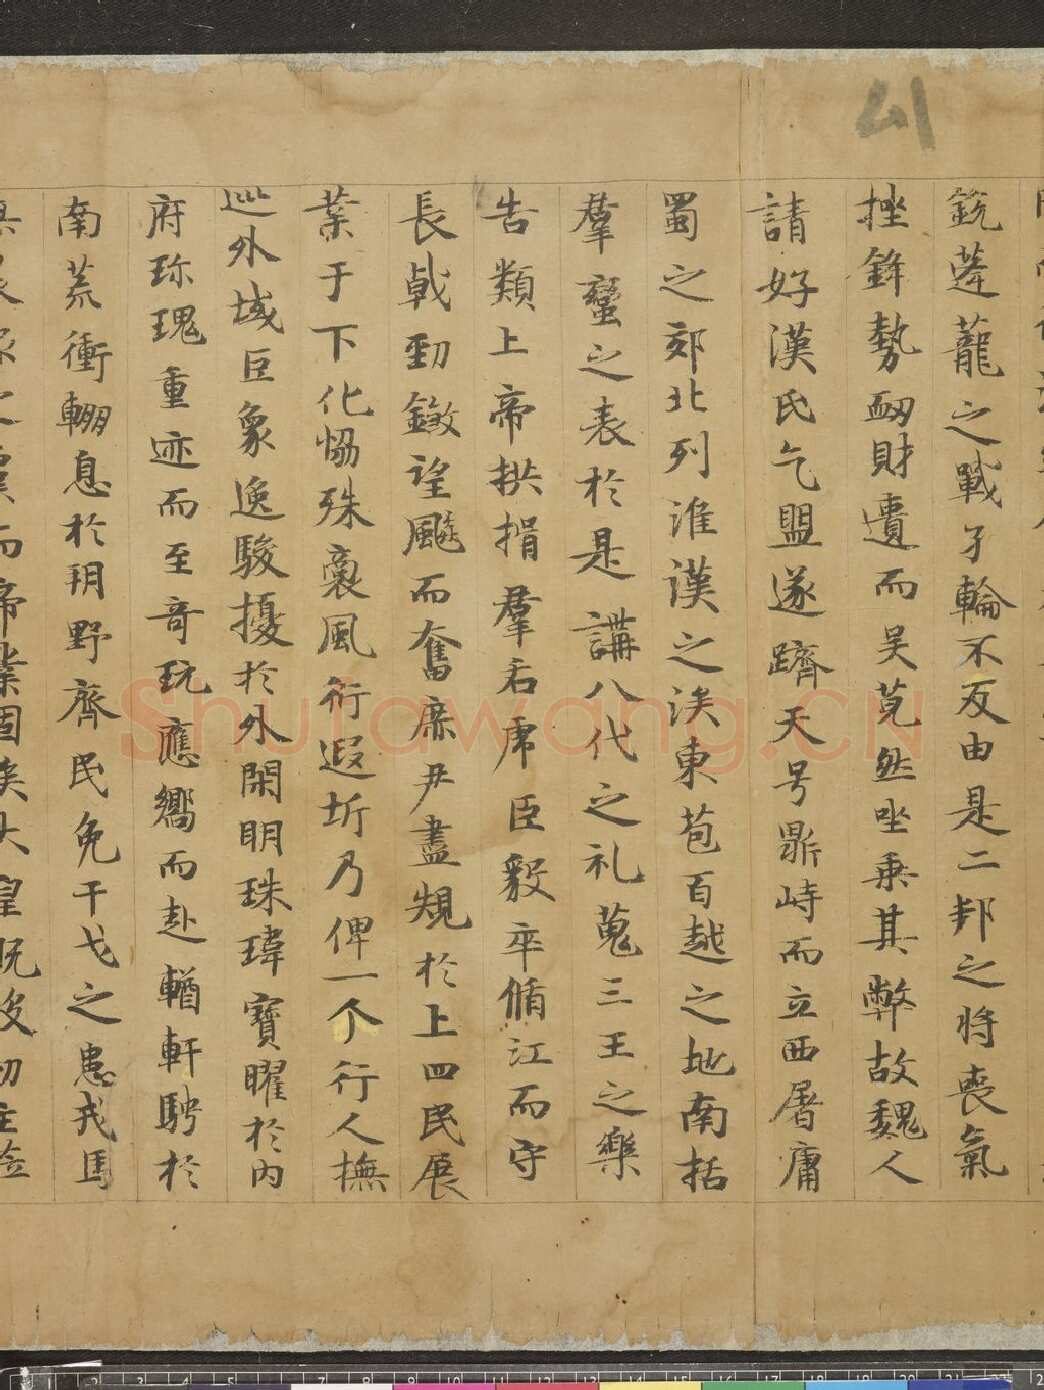 銳蓬蘢之戰孑輪不反由是二邦之將喪氣
挫鋒勢衂財遺而吴莧然坐乘其弊故魏人
請好漢氏乞盟遂躋天号鼎峙而立西屠庸
蜀之郊北列淮漢之涘東苞百越之地南括
羣蠻之表於是講八代之礼蒐三王之樂
告類上帝拱揖羣后虎臣毅卒脩江而守
長戟勁鎩望飈而奮庶尹盡規於上四民展
業于下化恊殊裔風衍遐圻乃俾一个行人撫
巡外域巨象逸駿擾於外閑明珠瑋寶曜於内
府珎瑰重迹而至奇玩應嚮而赴輶軒騁於
南荒衝輣息於朔野齊民免干戈之患戎馬
之虞而帝業固矣大皇既歿幼主莅
Shufawang.CN